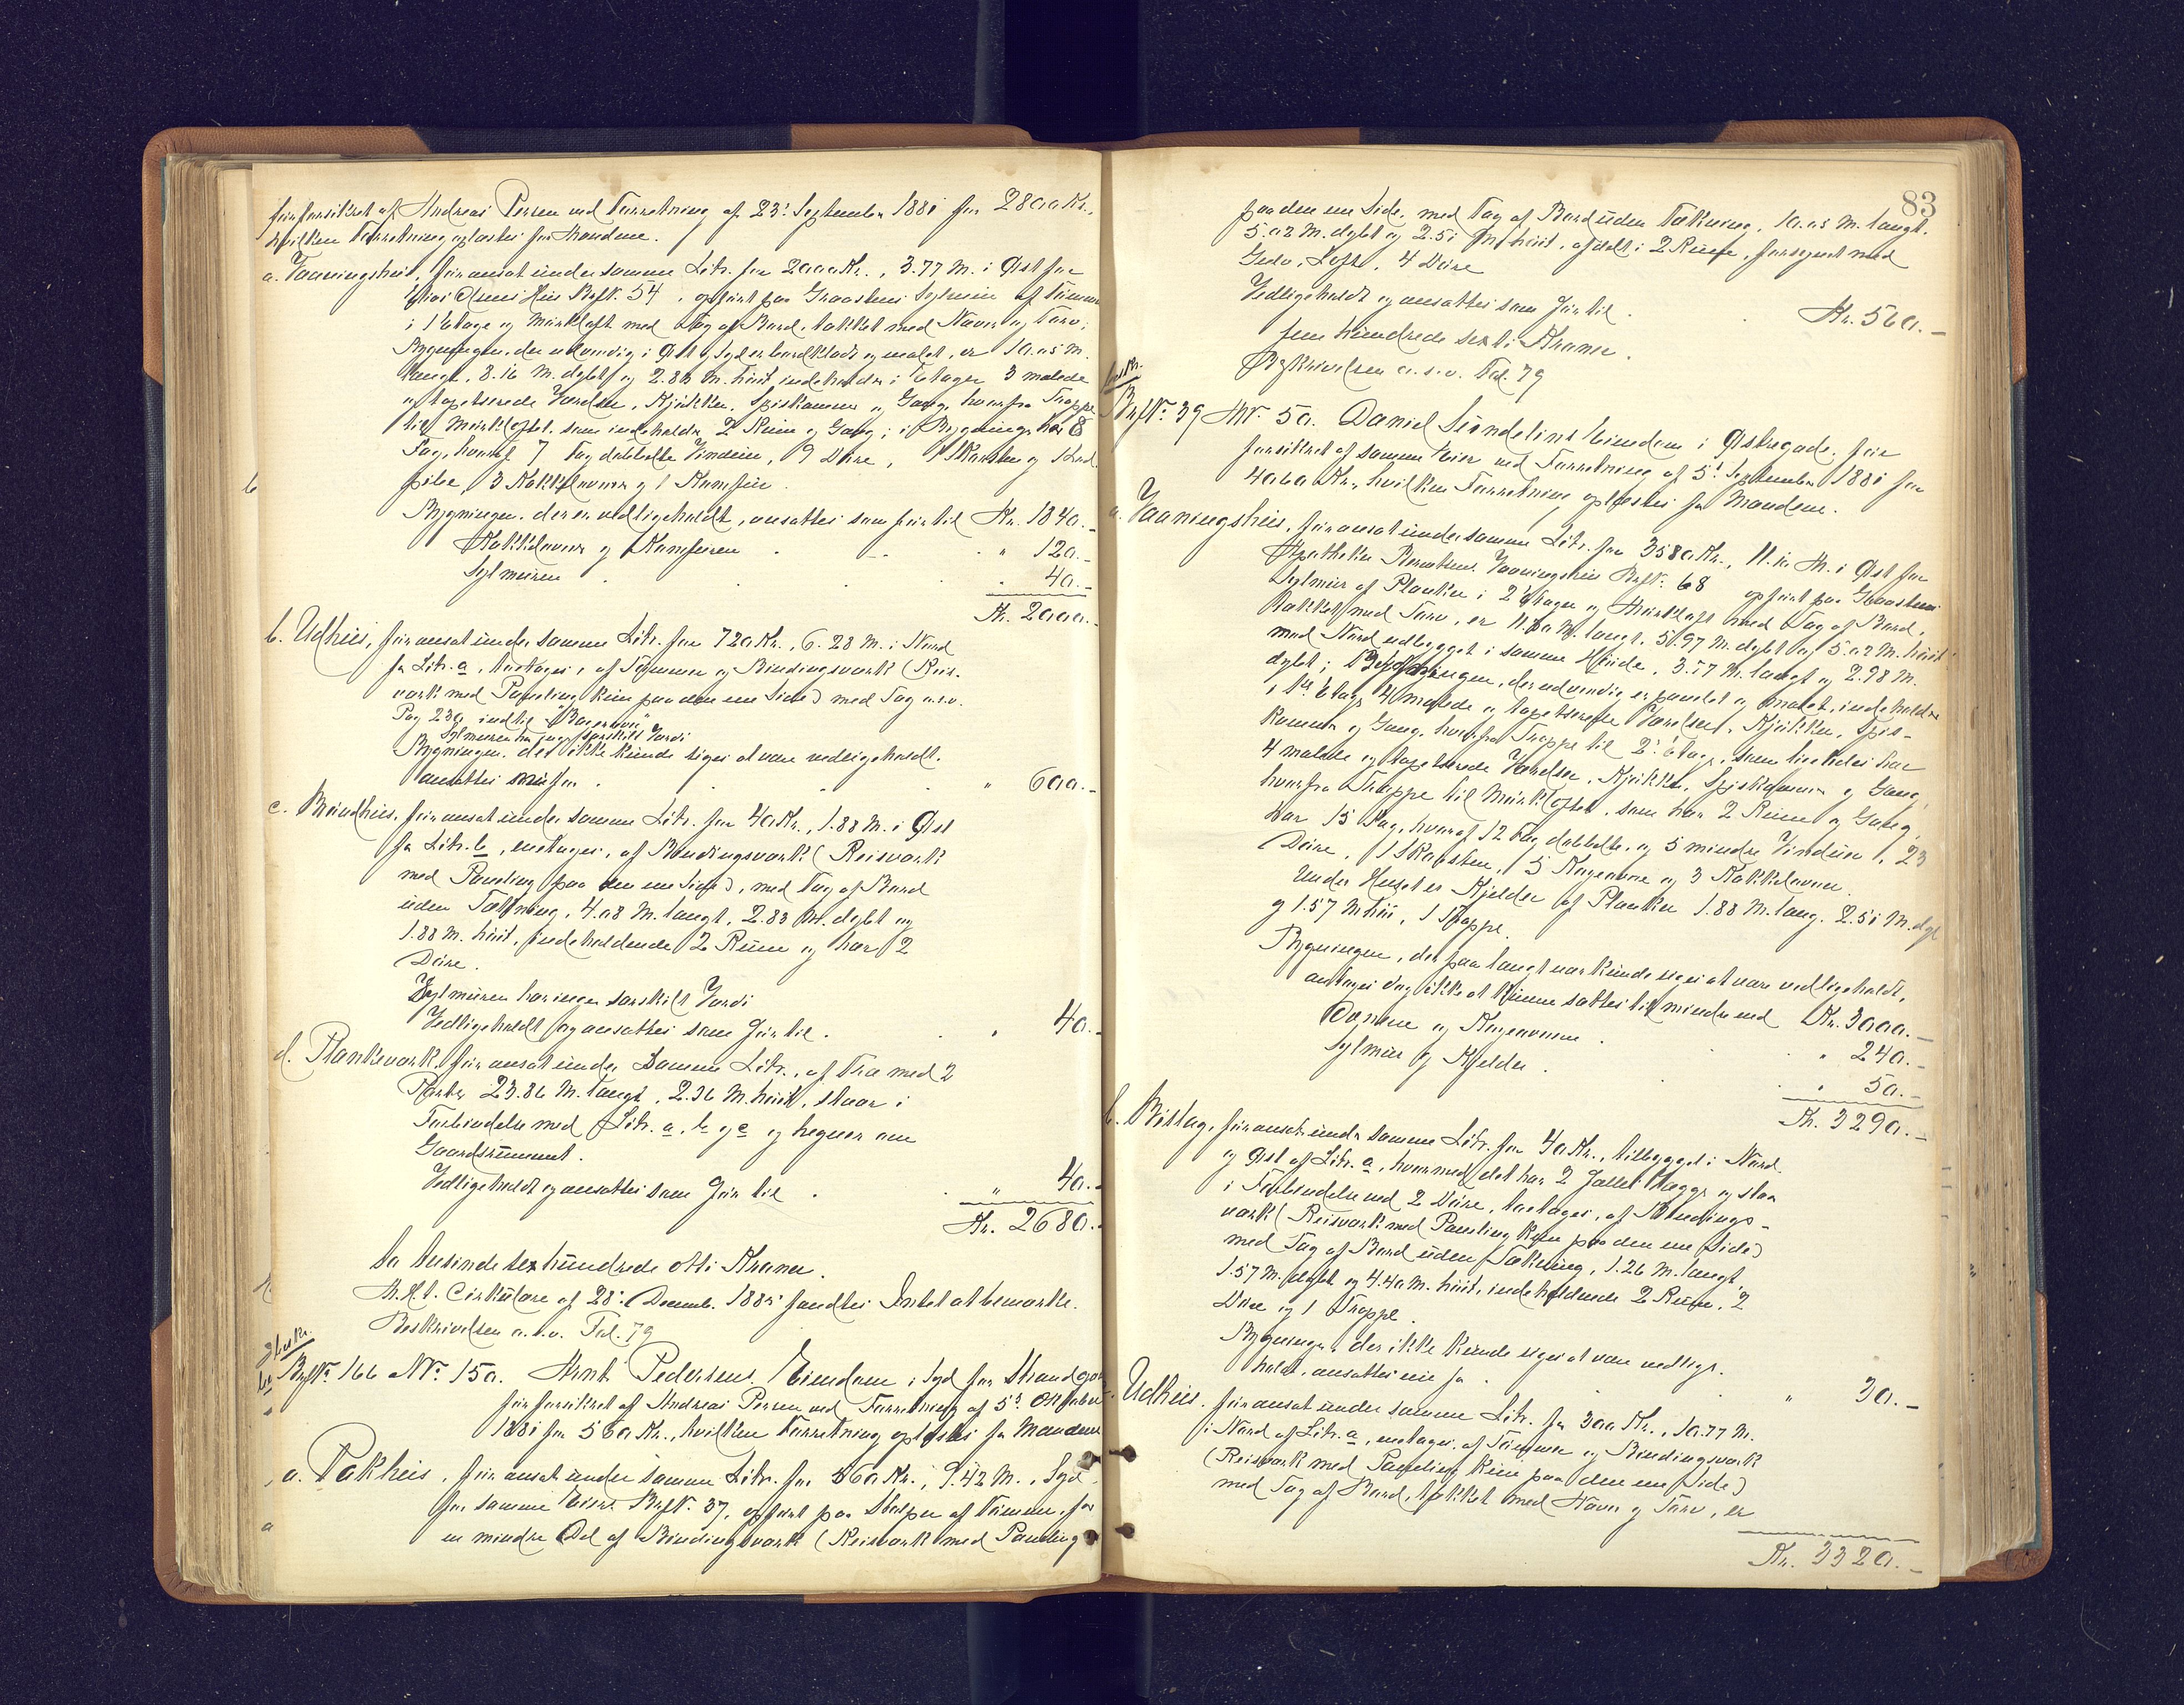 før forsikret af Andreas Persen ved Forretning af 23' September 1881 for 2800 Kr.,
hvilken Forretning oplæstes for Mændene.
a. Vaaningshus, før ansat under samme Litr. for 2000 Kr., 3.77 M. i Øst for
Hus BrfN. 54, opført paa Graastens Sylmuur af Tømmer
i 1 Etage og Mørkloft med Tag af Bord, tækket med Næver og Törv;
Bygningen, der udvendig i Øst og Syd er bordklædt og malet, er 10.05 M.
langt, 8.16 M. dybt og 2.83 M. høit, indeholder i Etagen 3 malede
og tapetserede Værelser, Kjøkken, Spiskammer og Gang, hvorfra Trappe
til Mørkloftet, som indeholder 2 Rum og Gang; i Bygningen har 8
Fag, hvoraf 7 Fag dobbelte Vinduer, 9 Døre, 1 Skorsten og 1
pibe, 3 Kakkelovner og 1 Komfur.
Bygningen, der er vedligeholdt, ansattes som før til Kr. 1840.-
Kakkelovner og Komfuren " 120.-
Sylmuren " 40.-
Kr. 2000.-
b. Udhus, før ansat under samme Litr. for 720 Kr., 6.28 M. i Nord
for Litr. a, toetages, af Tømmer og Bindingsværk (Reis-
værk med Paneling kun paa den ene Side) med Tag o.s.v.
Pag 230 indtil "Bagerovn"
Sylmuren har ingen særskilt Værdi
Bygningen, der ikke kunde siges at være vedligeholdt,
ansattes nu for " 600.-
c. Brøndhus, før ansat under samme Litr. for 40 Kr., 1.88 M. i Øst
for Litr. b, enetages, af Bindingsværk (Reisværk
med Paneling paa den ene Side), med Tag af Bord
uden Tækning, 4.08 M. langt, 2.83 M. dybt og
1.88 M. høit, indeholdende 2 Rum og har 2
Døre.
Sylmuren har ingen særskilt Værdi
Vedligeholdt og ansattes som før til " 40.-
d. Plankeværk, før ansat under samme Litr., af Træ med 2
Porter 23.86 M. langt, 2.36 M. høit, staar i
Forbindelse med Litr. a, b og c og hegner om
Gaardsrummet.
Vedligeholdt og ansattes som før til " 40.-
Kr. 2680.-
to tusinde sex hundrede otti Kroner.
M.H.t. Cirkulære af 28' Decemb. 1885 fandtes Intet at bemærke.
Beskrivelsen o.s.v. Fol. 79
BrfN. 166 MN. 150. Arnt Pedersens Eiendom i Syd for Strandgaden
før forsikret af Andreas Persen ved Forretning af 5' Oktober
1881 for 560 Kr., hvilken Forretning oplæstes for Mændene
a. Pakhus, før ansat under samme Litr. for 560 Kr., 9.42 M. i Syd
for samme Eiers BrfN. 37, opført paa Stolper af Tømmer, for
en mindre Del af Bindingsværk (Reisværk med Paneling
83
paa den ene Side, med Tag af Bord uden Tækning, 10.05 M. langt,
5.02 M. dybt og 2.51 M. høit, afdelt i 2 Rum, forsynet med
Gulv, Loft, 4 Døre
Vedligeholdt og ansattes som før til Kr. 560.-
fem hundrede sexti Kroner.
Beskrivelsen o.s.v. Fol. 79
BrfN. 39 MN. 50. Daniel Sundelins Eiendom i Østregade, før
forsikret af samme Eier ved Forretning af 5' September 1881 for
4060 Kr., hvilken Forretning oplæstes for Mændene.
a. Vaaningshus, før ansat under samme Litr. for 3580 Kr., M. i Øst for
Apotheker Vaaningshus BrfN. 68 opført paa Graastens
Sylmur af Planker i 2 Etager og Mørkloft med Tag af Bord,
tækket med Törv, er M. langt, 5.97 M. dybt og 5.02 M. høit
mod Nord udbygget i samme Høide, 3.77 M. langt og 2.98 M.
dybt; Bygningen, der udvendig er panelet og malet, indeholder
i 1ste Etage 4 malede og tapetserede Værelser, Kjøkken, Spis-
kammer og Gang, hvorfra Trappe til 2' Etage, som ligeledes har
4 malede og tapetserede Værelser, Kjøkken, Spiskammer og Gang,
hvorfra Trappe til Mørkloftet, som har 2 Rum og Gang,
har 15 Fag, hvoraf 12 Fag dobbelte, og 5 mindre Vinduer, 23
Døre, 1 Skorsten, 5 Kogeovne og 3 Kakkelovne.
Under Huset er Kjelder af Planker 1.88 M. lang, 2.51 M. dyb
og 1.57 M. høi, 1 Trappe.
Bygningen, der paa langt nær kunde siges at være vedligeholdt,
antages dog ikke at kunne sættes til mindre end Kr. 3000.-
Ovnene og Kogeovnene " 240.-
Sylmur og Kjelder " 50.-
Kr. 3290.-
b. Bislag, før ansat under samme Litr. for 40 Kr., tilbygget i Nord
og Øst af Litr. a, hvormed det har 2 fælles Vægge og staar
i Forbindelse ved 2 Døre, toetages, af Bindings-
værk (Reisværk med Paneling kun paa den ene Side)
med Tag af Bord uden Tækning, 1.26 M. langt
1.57 M. dybt og 4.40 M. høit, indeholdende 2 Rum, 2
Døre og 1 Trappe.
Bygningen, der ikke kunde siges at være vedlige-
holdt, ansattes nu for " 30.-
Udhus, før ansat under samme Litr. for 300 Kr., 10.77 M.
i Nord af Litr. a, enetages, af Tømmer og Bindingsværk
(Reisværk med Paneling kun paa den ene Side)
med Tag af Bord, tækket med Næver og Törv, er
Kr. 3320.-